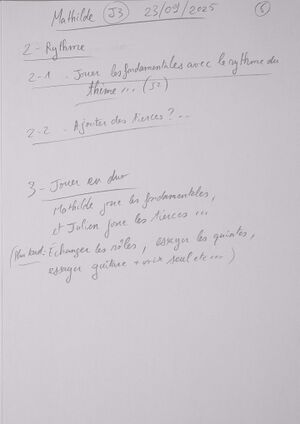 Mathilde J3 23/09/2025 5
2 - Rythme
2 - 1 . Jouer les fondamentales avec le rythme du
thème ... (J2)
2 - 2 . Ajouter des tierces ? ...
3 - Jouer en duo
Mathilde joue les fondamentales,
et Julien joue les tierces ...
(Plus tard - Echanger les rôles, essayer les quintes,
essayer guitare + voix seul etc ... )